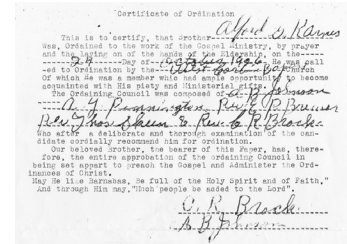 Certificate of Ordination
Alfred G Karnes
This is to certify, that Brother
Was, Ordained to the work of the Gospel ministry, by prayer
and the laying on of the hands of the Eldership, on the-----
----29----Day of-October 1926. He was call
-ed to Ordination by the-West Corbin Bap church
Of which He was a member who had ample opportunity to become
acquainted with His piety and Ministerial gifts.
The Ordaining Council was composed of A B Johnson
A. J Pennington, Rev. G. P. Brewer
Rev. Thos & Rev. C R Brock.
Who after a deliberate and thorough examination of the can-
didate cordially recommend him for ordination.
Our beloved Brother, the bearer of this Paper, has, there-
fore, the entire approbation of the ordaining Council in
being set appart to preach the Gospel and Administer the Ord-
inances of Christ.
May He like Barnabas, Be full of the Holy Spirit and of Faith,"
And through Him may,"Much people be added to the Lord".
C. R. Brock.
A. B Johnson.